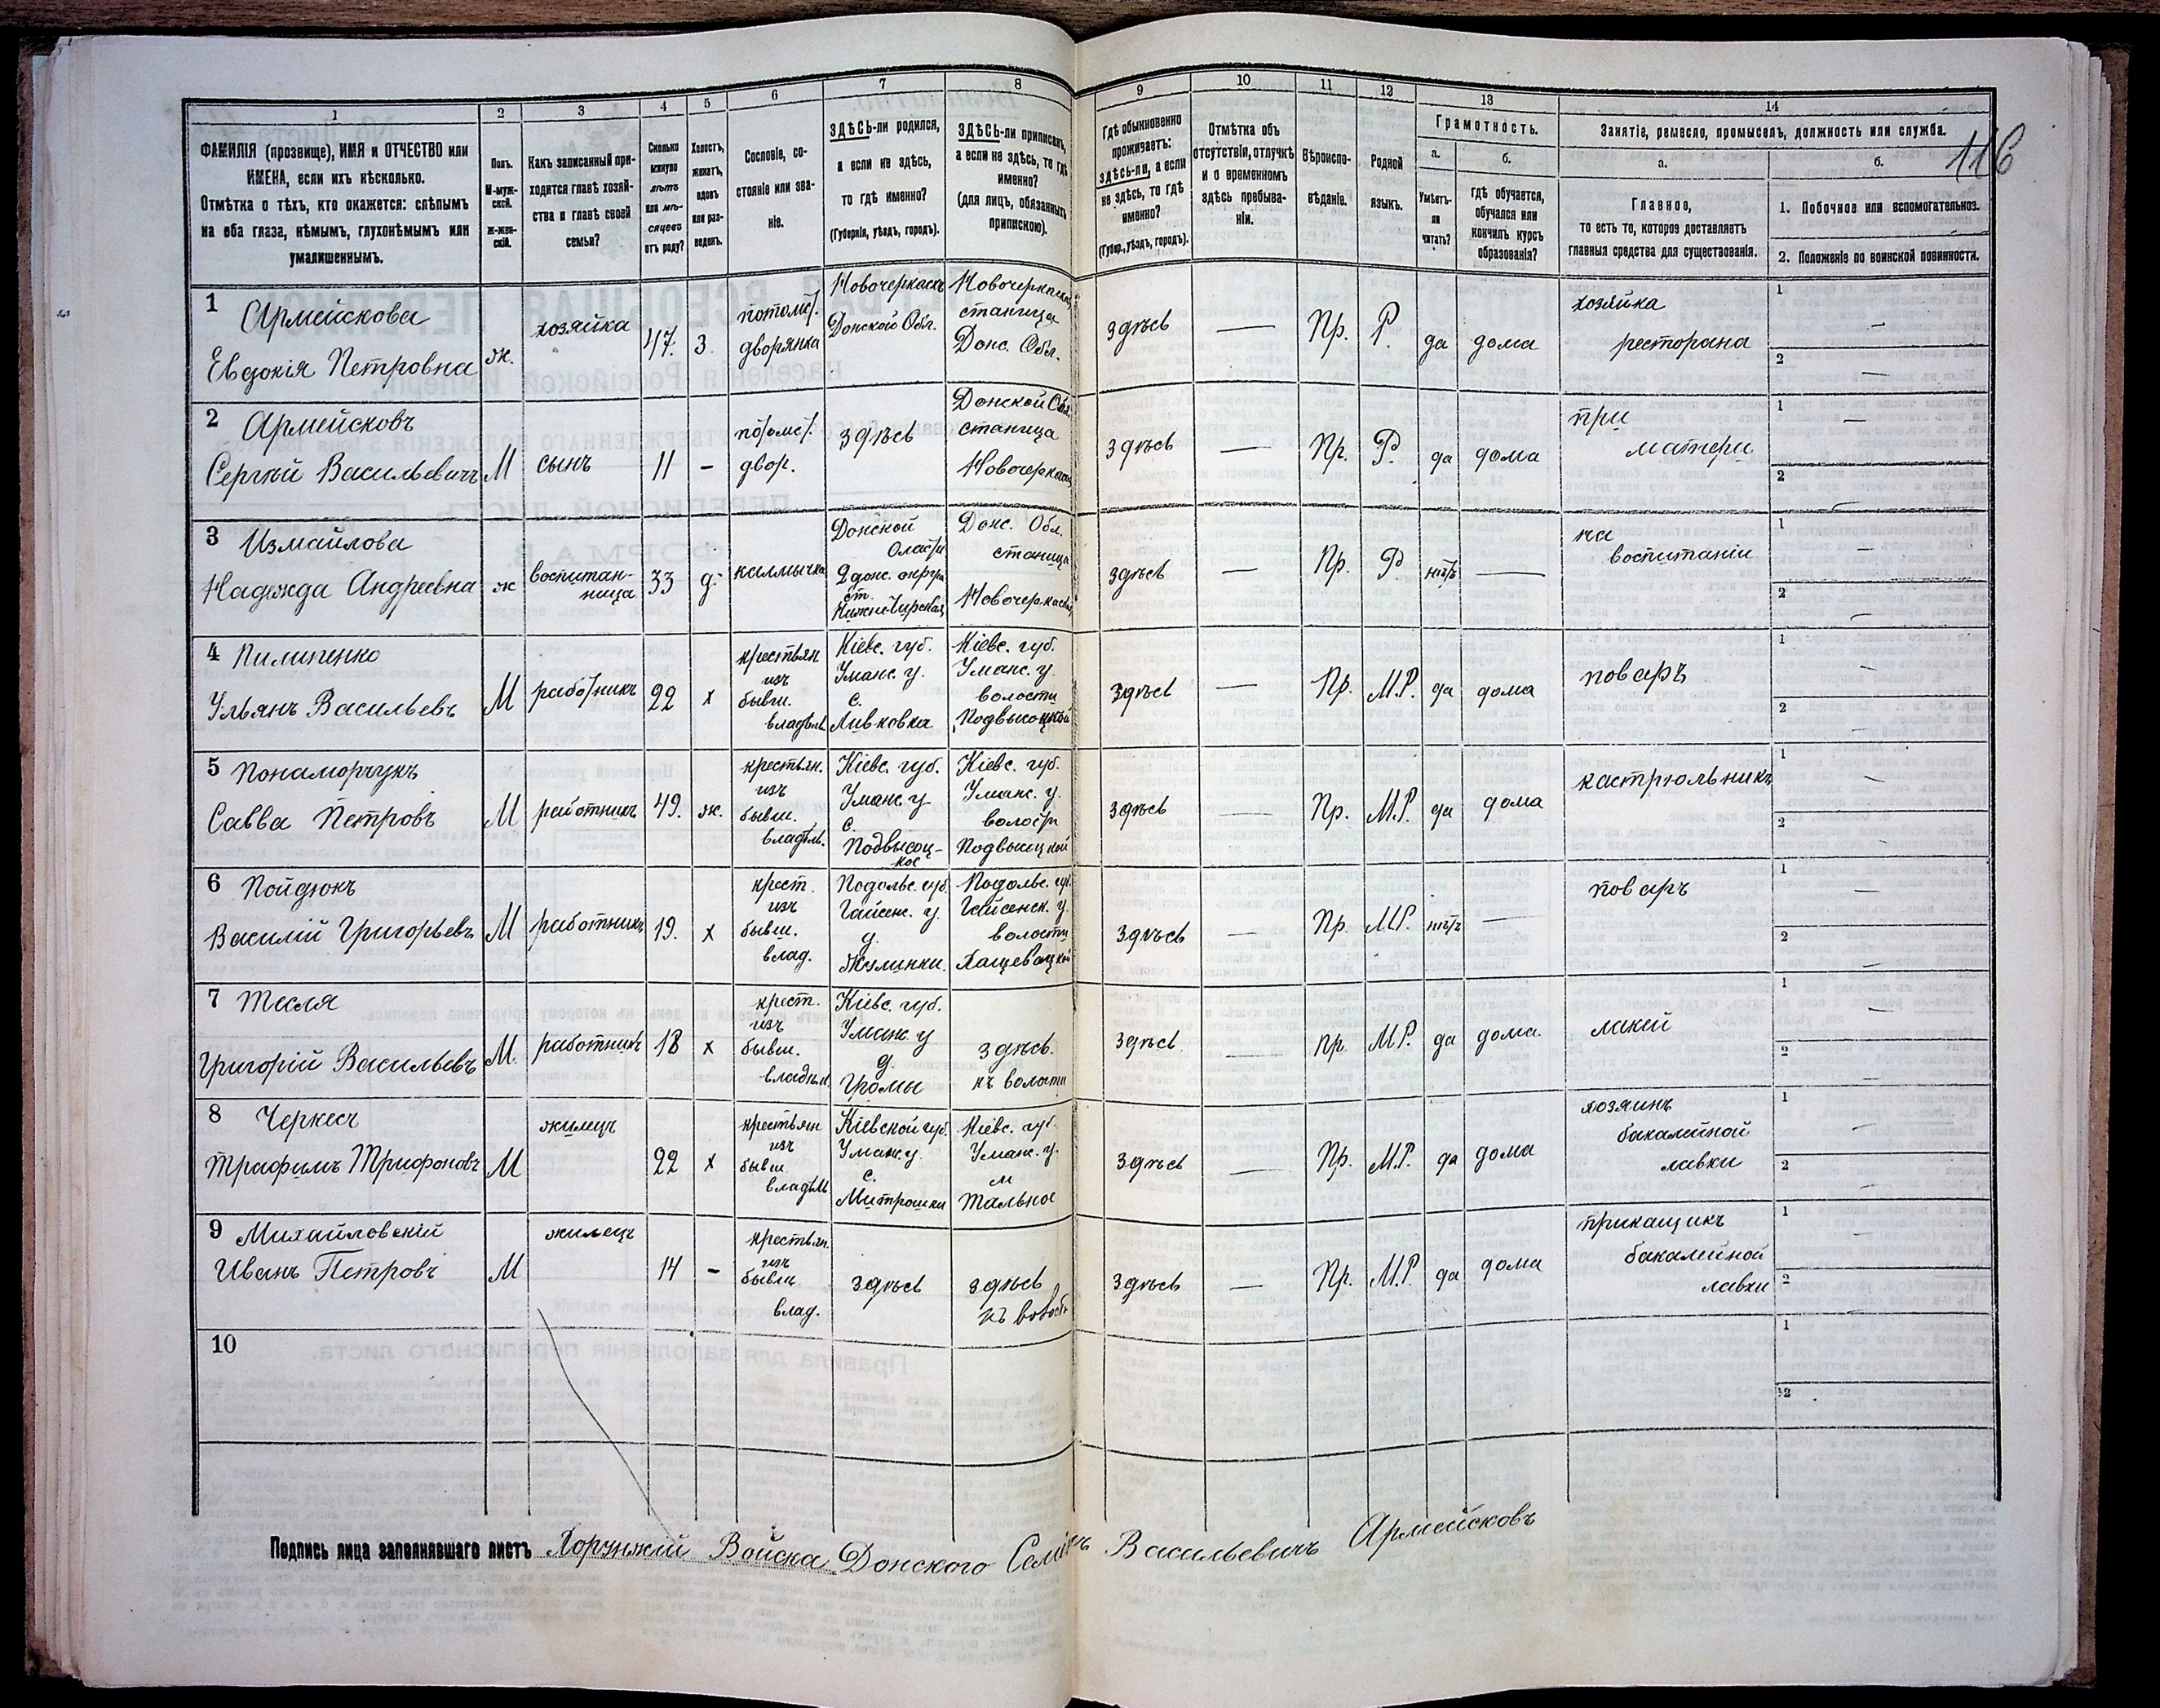 116
1 2 3 4 5 6 7 8 9 10 11 12 13 14
ФАМИЛІЯ (прозвище), ИМЯ и ОТЧЕСТВО или
ИМЕНА, если ихъ нѣсколько.
Отмѣтка о тѣхъ, кто окажется: слѣпымъ
на оба глаза, нѣмымъ, глухонѣмымъ или
умалишеннымъ.
Полъ.
М-муж-
ской.
Ж-жен-
скій.
Какъ записанный при-
ходится главѣ хозяй-
ства и главѣ своей
семьи?
Сколько
минуло
лѣтъ
или мѣ-
сяцевъ
отъ роду?
Холостъ,
женатъ,
вдовъ
или раз-
веденъ.
Сословіе, со-
стояніе или зва-
ніе.
ЗДѢСЬ-ли родился,
а если не здѣсь,
то гдѣ именно?
(Губернія, уѣздъ, городъ).
ЗДѢСЬ-ли приписанъ,
а если не здѣсь, то гдѣ
именно?
(для лицъ, обязанныхъ
припискою).
Гдѣ обыкновенно
проживаетъ:
здѣсь-ли, а если
не здѣсь, то гдѣ
именно?
(Губер., уѣздъ, городъ).
Отмѣтка объ
отсутствіи, отлучкѣ
и о временномъ
здѣсь пребыва-
ніи.
Вѣроиспо-
вѣданіе.
Родной
языкъ.
Грамотность.
а.
Умѣетъ-
ли
читать?
б.
гдѣ обучается,
обучался или
кончилъ курсъ
образованія?
Занятіе, ремесло, промыселъ, должность или служба.
а.
Главное,
то есть то, которое доставляетъ
главныя средства для существованія.
б.
1. Побочное или вспомогательное.
2. Положеніе по воинской повинности.
1 Армейскова
Евдокія Петровна
ж.
хозяйка
47.
З
потомс.
дворянка
Новочеркаскъ
Донской Обл.
Новочеркаская
станица
Донс. Обл.
здѣсь
—
Пр.
Р.
да
дома
хозяйка
ресторана
1 —
2 —
2 Армейсковъ
Сергѣй Васильевичъ
М
сынъ
11
-
потомс.
двор.
здѣсь
Донской Обл.
станица
Новочеркаская
здѣсь
—
Пр.
Р.
да
дома
при
матери
1 —
2 —
3 Измайлова
Надежда Андреевна
ж
воспитан-
ница
33
д.
калмычка
Донской
Оласти
2 донс. округа
ст.
Нижнечирская
Донс. Обл.
станица
Новочеркаская
здѣсь
—
Пр.
Р
нѣтъ
—
на
воспитаніи
1 —
2 —
4 Пилипенко
Ульянъ Васильевъ
М
работникъ
22
х
крестьян
изъ
бывш.
владѣль
Кіевс. губ.
Уманс. у.
с.
Ливковка
Кіевс. губ.
Уманс. у.
волости
Подвысоцкой
здѣсь
—
Пр.
М.Р.
да
дома
поваръ
1 —
2 —
5 Понаморчукъ
Савва Петровъ
М
работникъ
49.
ж.
крестьян.
изъ
бывш.
владѣль.
Кіевс. губ.
Уманс. у
с.
Подвысоц-
кое
Кіевс. губ.
Уманс. у.
волости
Подвысоцкой
здѣсь
Пр.
М.Р.
да
дома
кастрюльникъ
1 —
2 —
6 Пойдюкъ
Василій Григорьевъ
М
работникъ
19.
х
крест.
изъ
бывш.
влад.
Подольс. губ.
Гайсенс. у.
д.
Жулинки.
Подольс. губ.
Гайсенск. у.
волости
Хащеватской
здѣсь
—
Пр.
М.Р.
нѣтъ
—
поваръ
1 —
2 —
7 Тесля
Григорій Васильевъ
М.
работникъ
18
х
крест.
изъ
бывш.
владѣль.
Кіевс. губ.
Уманс. у
д.
Громы
здѣсь.
къ волости
здѣсь
—
Пр.
М.Р.
да
дома.
лакей
1 —
2 —
8 Черкесъ
Трафимъ Трифоновъ
М
жилецъ
22
х
крестьян
изъ
бывш.
владѣль
Кіевской губ.
Уманс. у.
с.
Митрошки
Кіевс. губ.
Уманс. у.
м
Тальное
здѣсь
—
Пр.
М.Р.
да
дома
хозяинъ
бакалейной
лавки
1 —
2 —
9 Михайловскій
Иванъ Петровъ
М
жилецъ
14
-
крестьян.
изъ
бывш.
влад.
здѣсь
здѣсь
къ волости
здѣсь
—
Пр.
М.Р.
да
дома
прикащикъ
бакалейной
лавки
1 —
2
10
1
2
Подпись лица заполнявшаго листъ Хорунжій Войска Донского Васильевичъ Армейсковъ